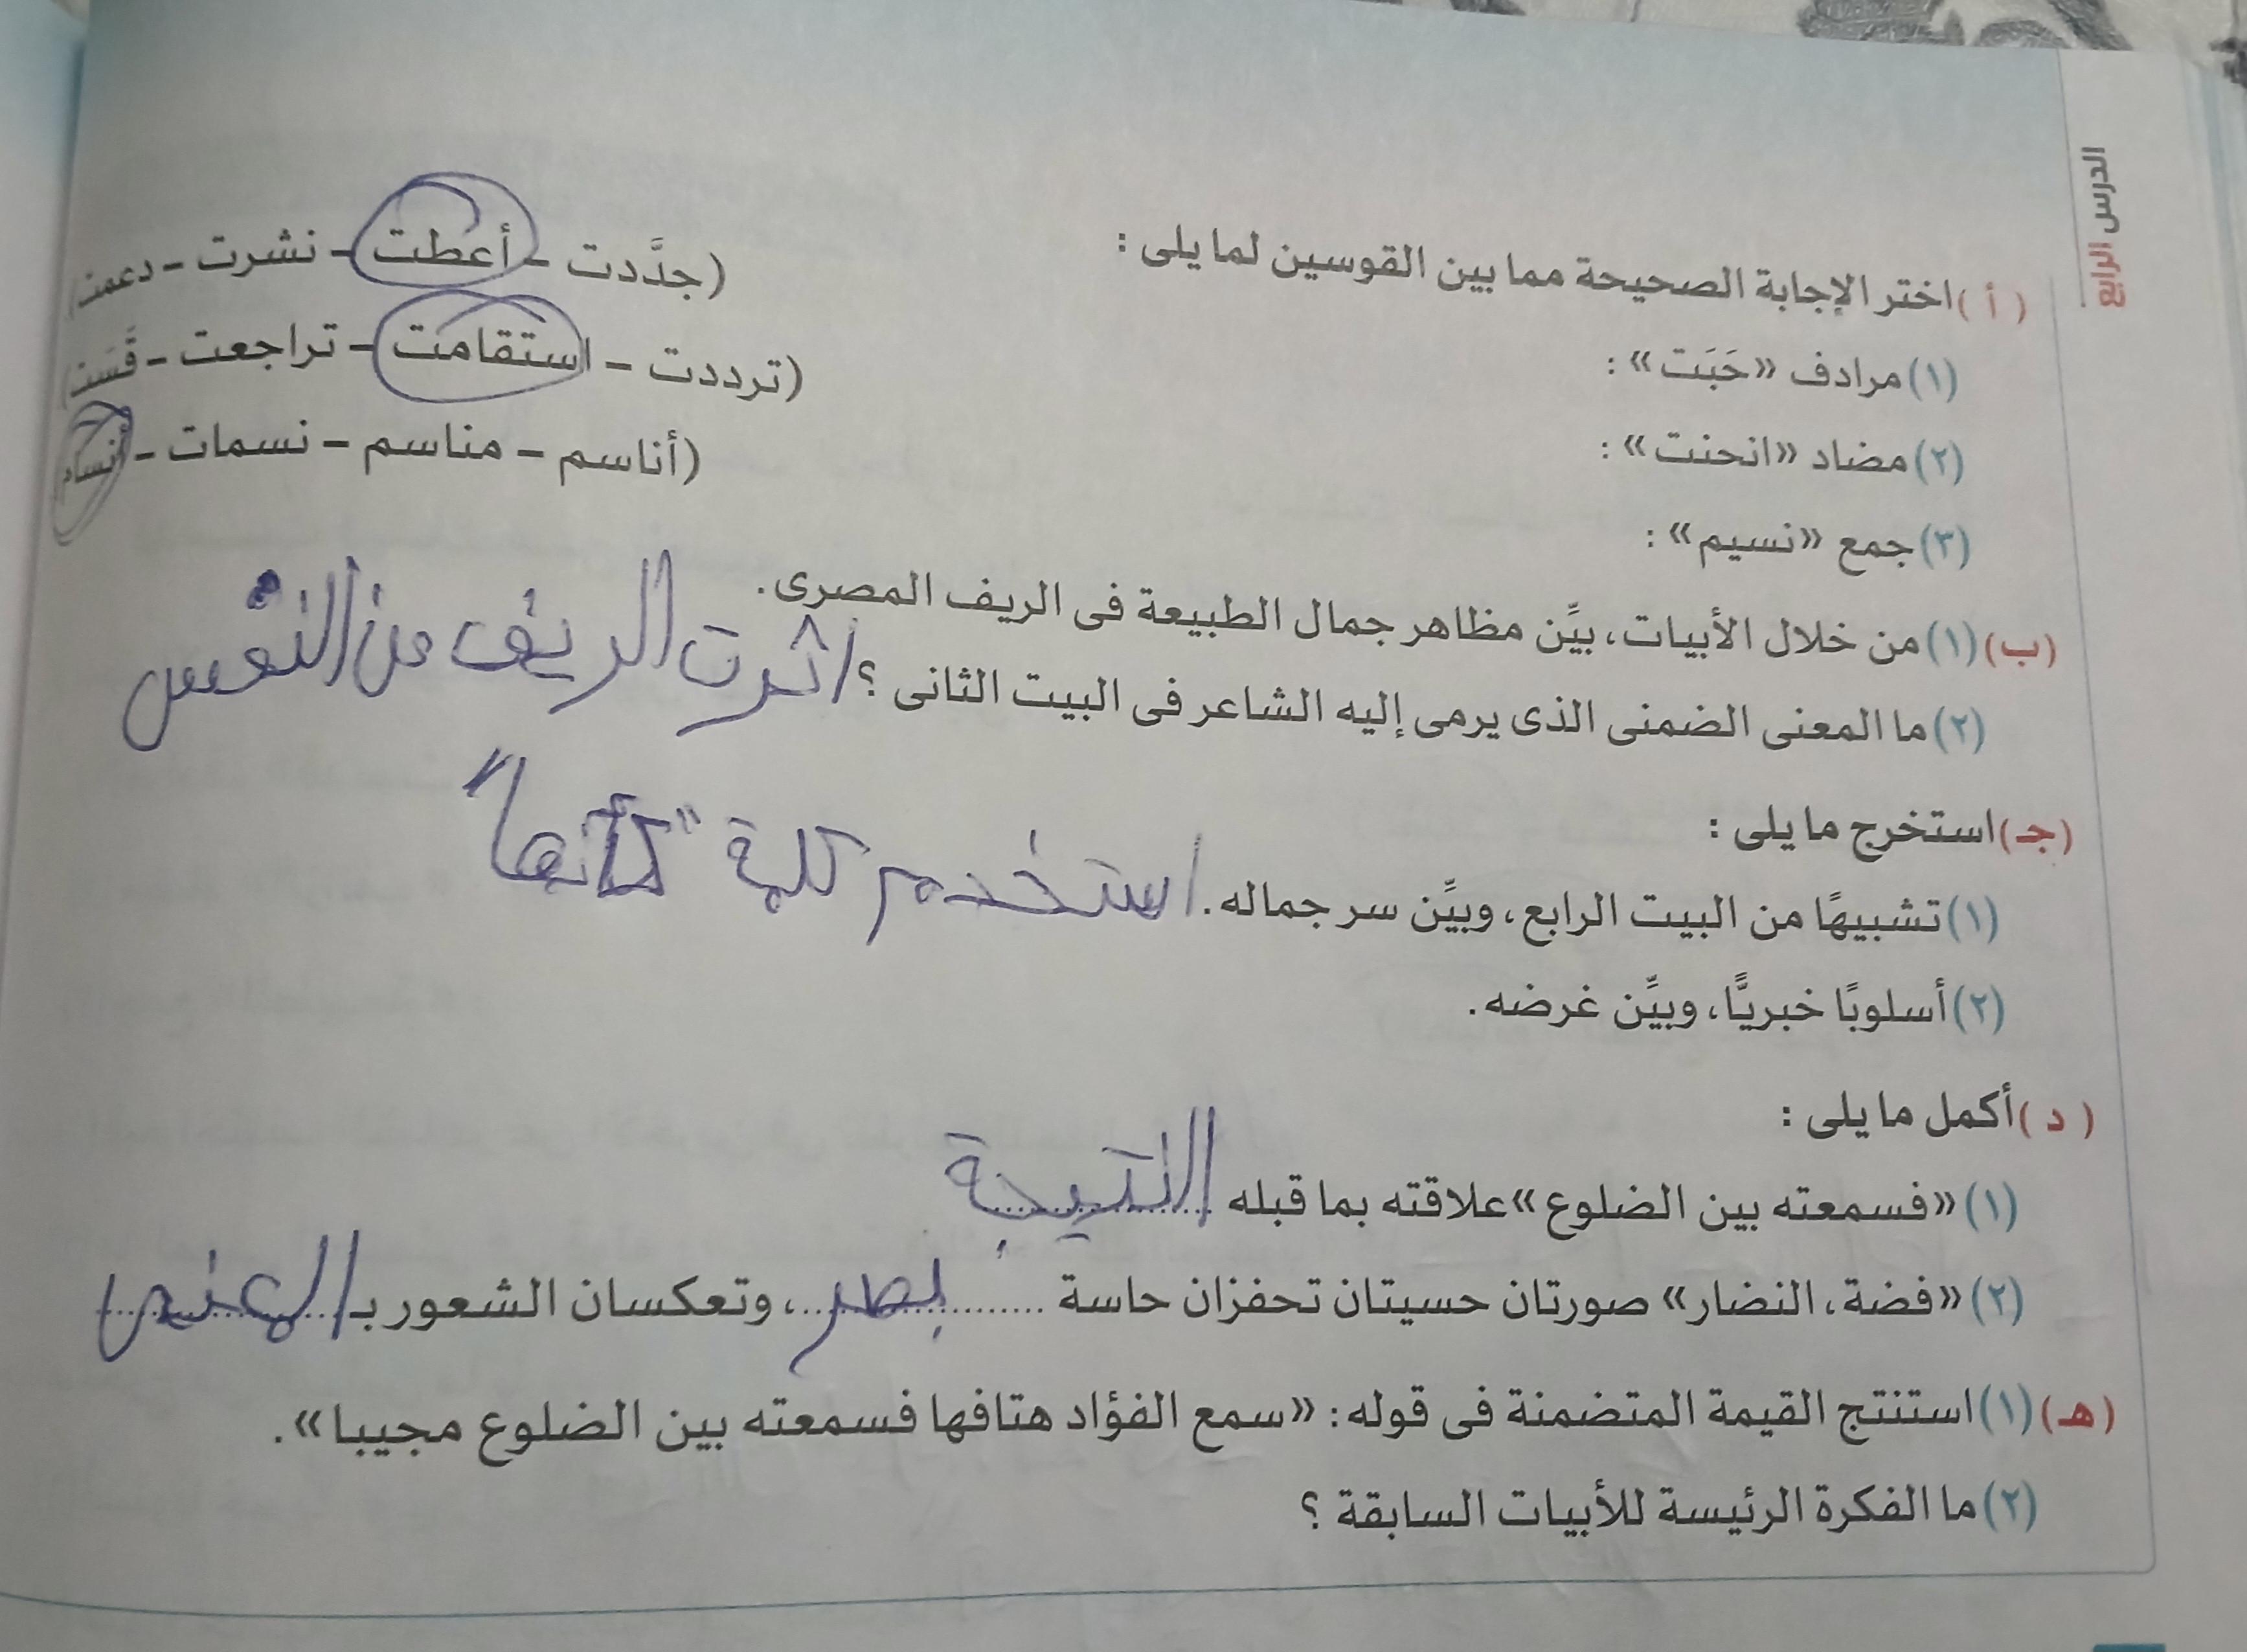 الدرس الرابع
( أ ) اختر الإجابة الصحيحة مما بين القوسين لما يلى :
(١) مرادف «حَبَت» : (جدَّدت – أعطت – نشرت – دعمت)
(٢) مضاد «انحنت» : (ترددت – استقامت – تراجعت – قَسَت)
(٣) جمع «نسيم» : (أناسم – مناسم – نسمات – أنسام)
(ب) (١) من خلال الأبيات، بيِّن مظاهر جمال الطبيعة فى الريف المصرى.
(٢) ما المعنى الضمنى الذى يرمى إليه الشاعر فى البيت الثانى ؟ اثرت الريف عن النفس
(جـ) استخرج ما يلى :
(١) تشبيهًا من البيت الرابع، وبيِّن سر جماله. استخدم كلمة "كأنها"
(٢) أسلوبًا خبريًّا، وبيِّن غرضه.
( د ) أكمل ما يلى :
(١) «فسمعته بين الضلوع» علاقته بما قبله النتيجة
(٢) «فضة، النضار» صورتان حسيتان تحفزان حاسة بصر، وتعكسان الشعور بـ
(هـ) (١) استنتج القيمة المتضمنة فى قوله : «سمع الفؤاد هتافها فسمعته بين الضلوع مجيبا».
(٢) ما الفكرة الرئيسة للأبيات السابقة ؟